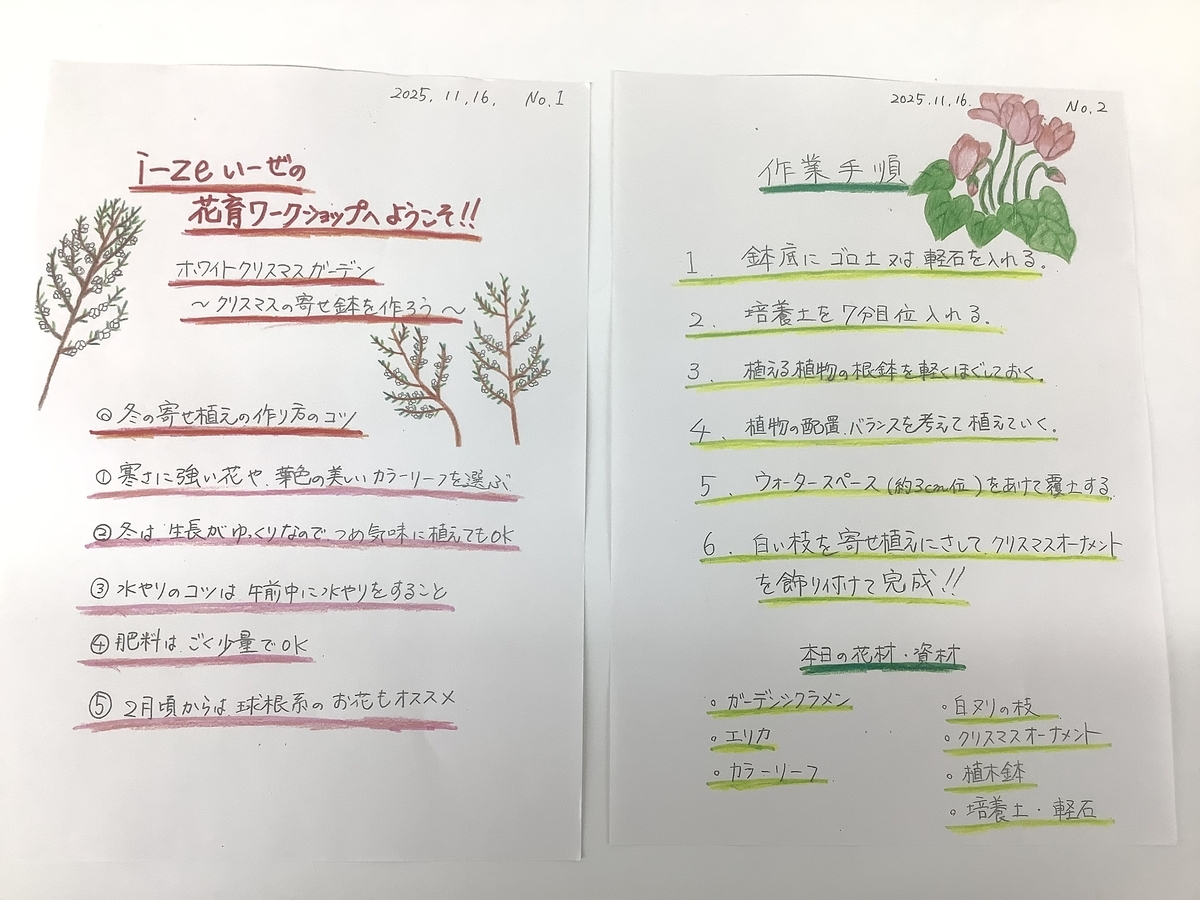 2025.11.16. No.1
i-ze いーぜの
花育ワークショップへようこそ!!
ホワイトクリスマスガーデン
〜クリスマスの寄せ鉢を作ろう〜
◎冬の寄せ植えの作り方のコツ
①寒さに強い花や、葉色の美しいカラーリーフを選ぶ
②冬は、生長がゆっくりなので、つめ気味に植えてもOK
③水やりのコツは午前中に水やりをすること
④肥料は、ごく少量でOK
⑤2月頃からは、球根系のお花もオススメ
2025.11.16. No.2
作業手順
1. 鉢底にゴロ土又は軽石を入れる。
2. 培養土を7分目位入れる。
3. 植える植物の根鉢を軽くほぐしておく。
4. 植物の配置、バランスを考えて植えていく。
5. ウォータースペース(約3cm位)をあけて覆土する。
6. 白い枝を寄せ植えにさして、クリスマスオーナメント
を飾り付けて完成!!
本日の花材・資材
◦ガーデンシクラメン
◦エリカ
◦カラーリーフ
◦白ヌリの枝
◦クリスマスオーナメント
◦植木鉢
◦培養土・軽石